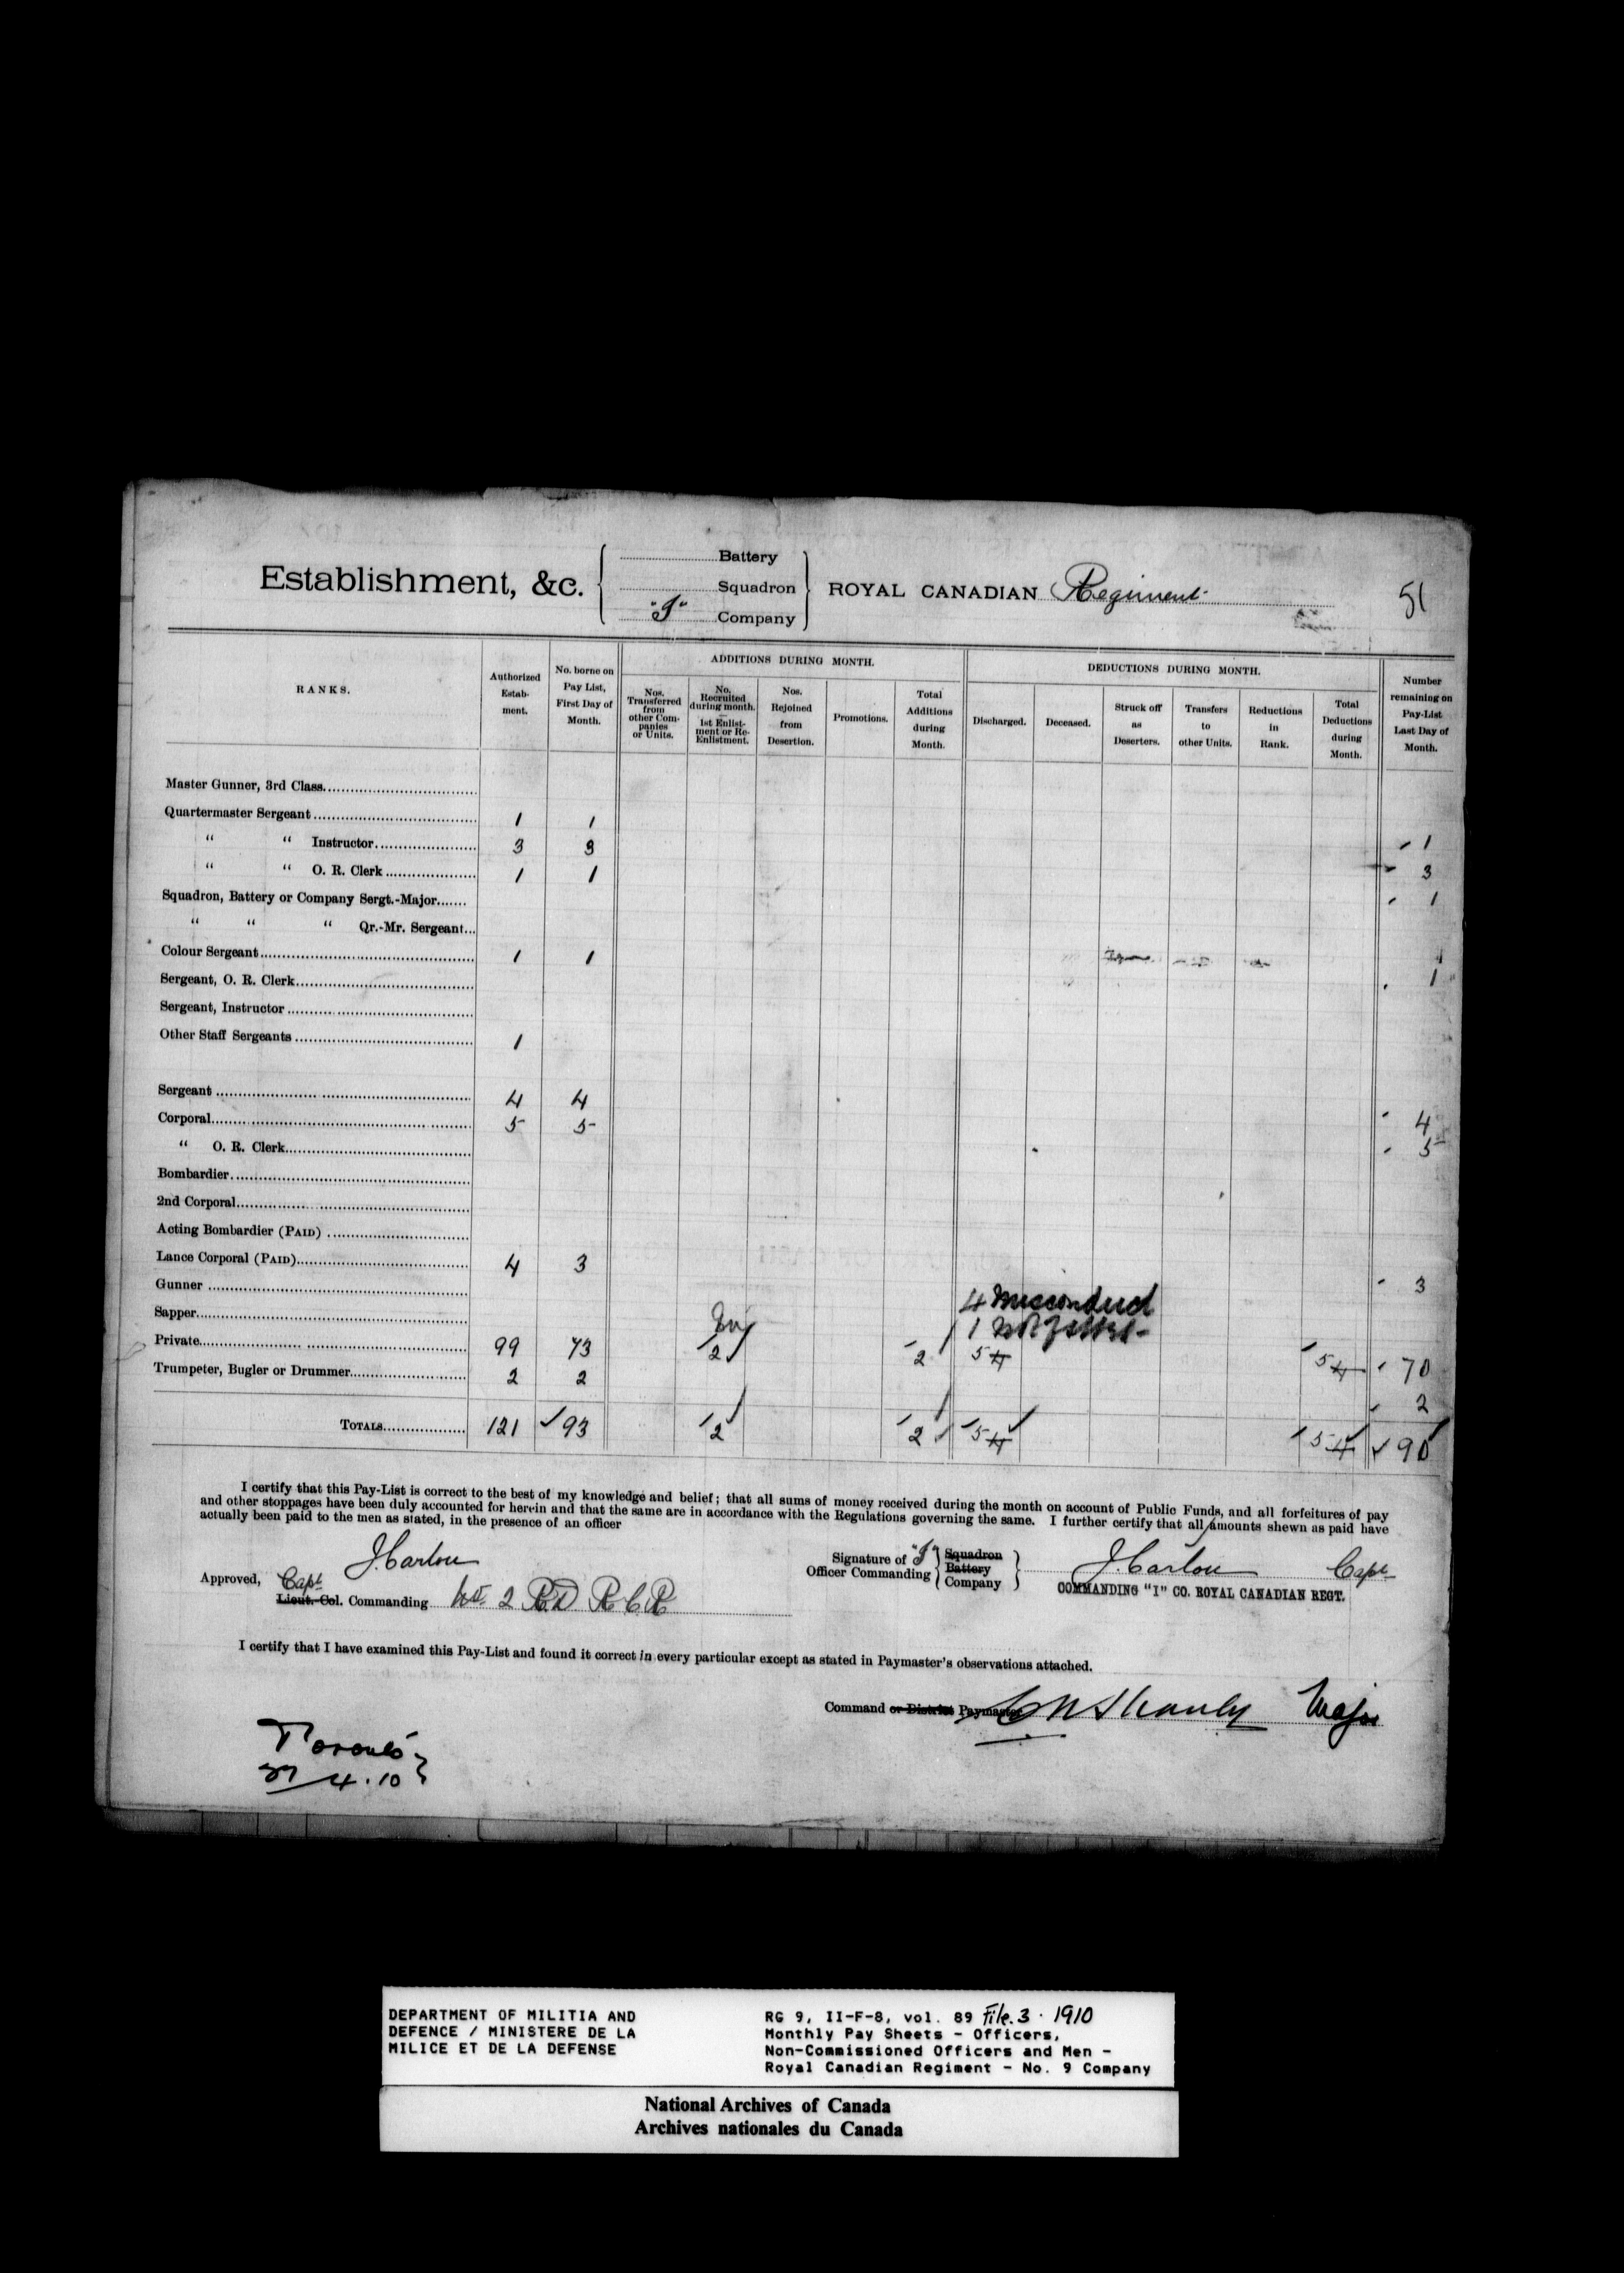 Battery
Establishment, &c. Squadron ROYAL CANADIAN Regiment 51
"I" Company
RANKS.
Authorized Estab- ment.
No. borne on Pay List, First Day of Month.
ADDITIONS DURING MONTH.
Nos. Transferred from other Com- panies or Units.
No. Recruited during month. — 1st Enlist- ment or Re- Enlistment.
Nos. Rejoined from Desertion.
Promotions.
Total Additions during Month.
DEDUCTIONS DURING MONTH.
Discharged.
Deceased.
Struck off as Deserters.
Transfers to other Units.
Reductions in Rank.
Total Deductions during Month.
Number remaining on Pay-List Last Day of Month.
Master Gunner, 3rd Class
Quartermaster Sergeant 1 1 1
" " Instructor 3 3 3
" " O. R. Clerk 1 1 1
Squadron, Battery or Company Sergt.-Major
" " " Qr.-Mr. Sergeant
Colour Sergeant 1 1 1
Sergeant, O. R. Clerk
Sergeant, Instructor
Other Staff Sergeants 1
Sergeant 4 4 4
Corporal 5 5 5
" O. R. Clerk
Bombardier
2nd Corporal
Acting Bombardier (PAID)
Lance Corporal (PAID) 4 3 3
Gunner
4 Misconduct
Sapper
1
Private 99 73 2 2 5 4 5 4 70
Trumpeter, Bugler or Drummer 2 2 2
TOTALS 121 93 2 2 5 4 5 4 90
I certify that this Pay-List is correct to the best of my knowledge and belief; that all sums of money received during the month on account of Public Funds, and all forfeitures of pay
and other stoppages have been duly accounted for herein and that the same are in accordance with the Regulations governing the same. I further certify that all amounts shewn as paid have
actually been paid to the men as stated, in the presence of an officer
Approved, Capt J. Carlou
Lieut.-Col. Commanding No. 2 R.D R C R
Signature of "I" Squadron
Officer Commanding Battery
Company
J. Carlou Capt
COMMANDING "I" CO. ROYAL CANADIAN REGT.
I certify that I have examined this Pay-List and found it correct in every particular except as stated in Paymaster's observations attached.
Command or District Paymaster Major
Toronto
27 4.10
DEPARTMENT OF MILITIA AND
DEFENCE / MINISTERE DE LA
MILICE ET DE LA DEFENSE
RG 9, II-F-8, vol. 89 File.3 · 1910
Monthly Pay Sheets - Officers,
Non-Commissioned Officers and Men -
Royal Canadian Regiment - No. 9 Company
National Archives of Canada
Archives nationales du Canada